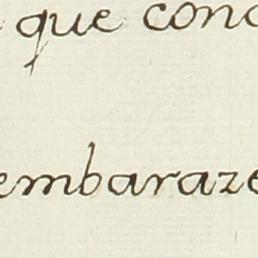 que conc
embaraze